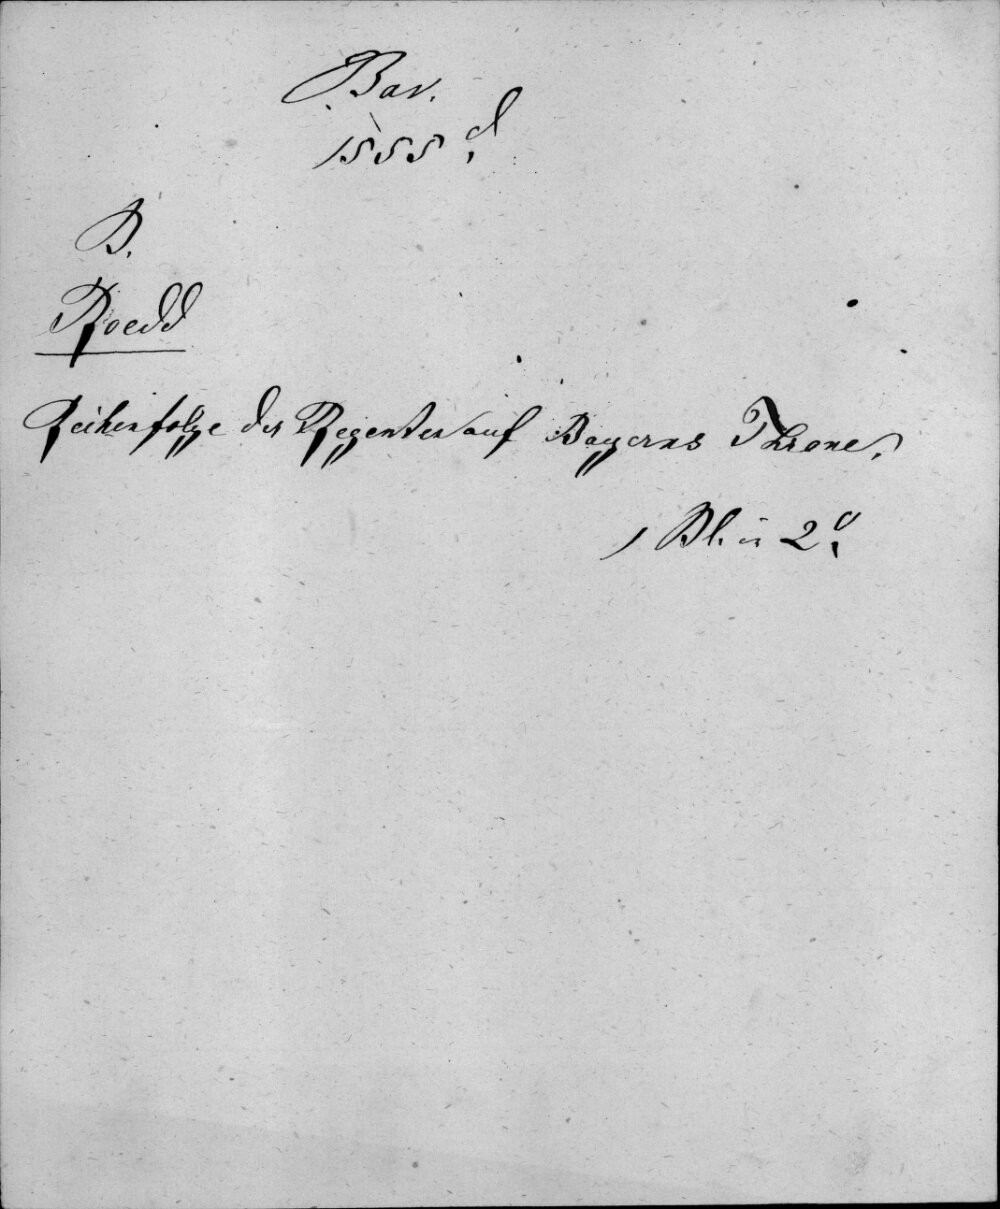 Bav.
1555 d.
B.
Roedd
Reihenfolge der Regenten auf Bayerns Throne.
1 Bl. in 2°.